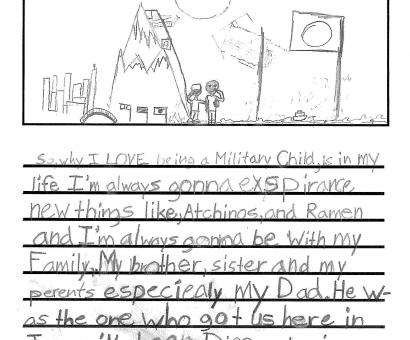 So, why I LOVE being a Military Child, is in my
life I'm always gonna exspirance
new things like, Atchinos, and Ramen
and I'm always gonna be with my
Family, My brother, sister and my
perents especiealy my Dad. He w-
as the one who got us here in